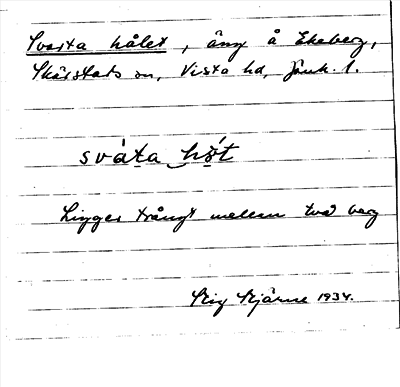 Svarta hålet, äng å Ekeberg,
Skärstads sn, Vista hd, Jönk. l.
svát̠a hö̠́t
Ligger trångt mellem två berg
Stig Stjärne 1934.